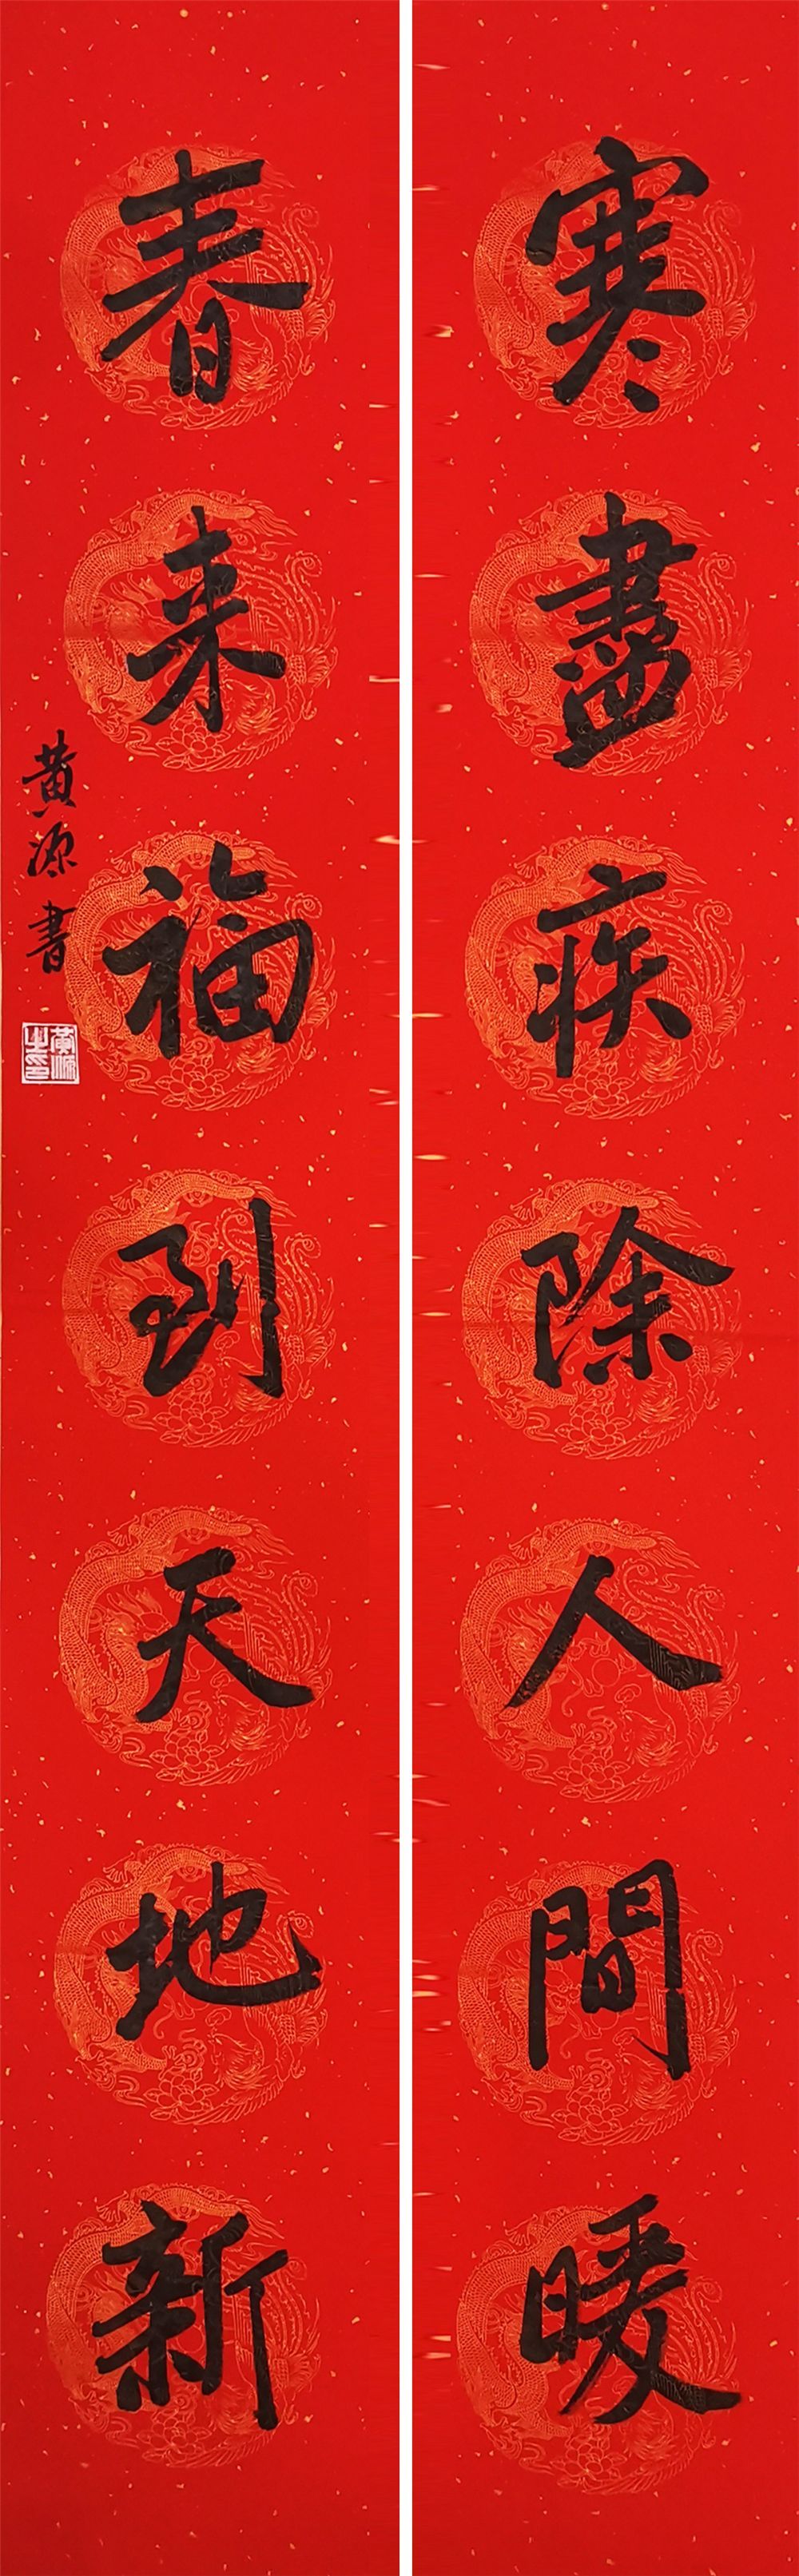 寒盡疾除人間暖
春来福到天地新
黄源書
黄源之印